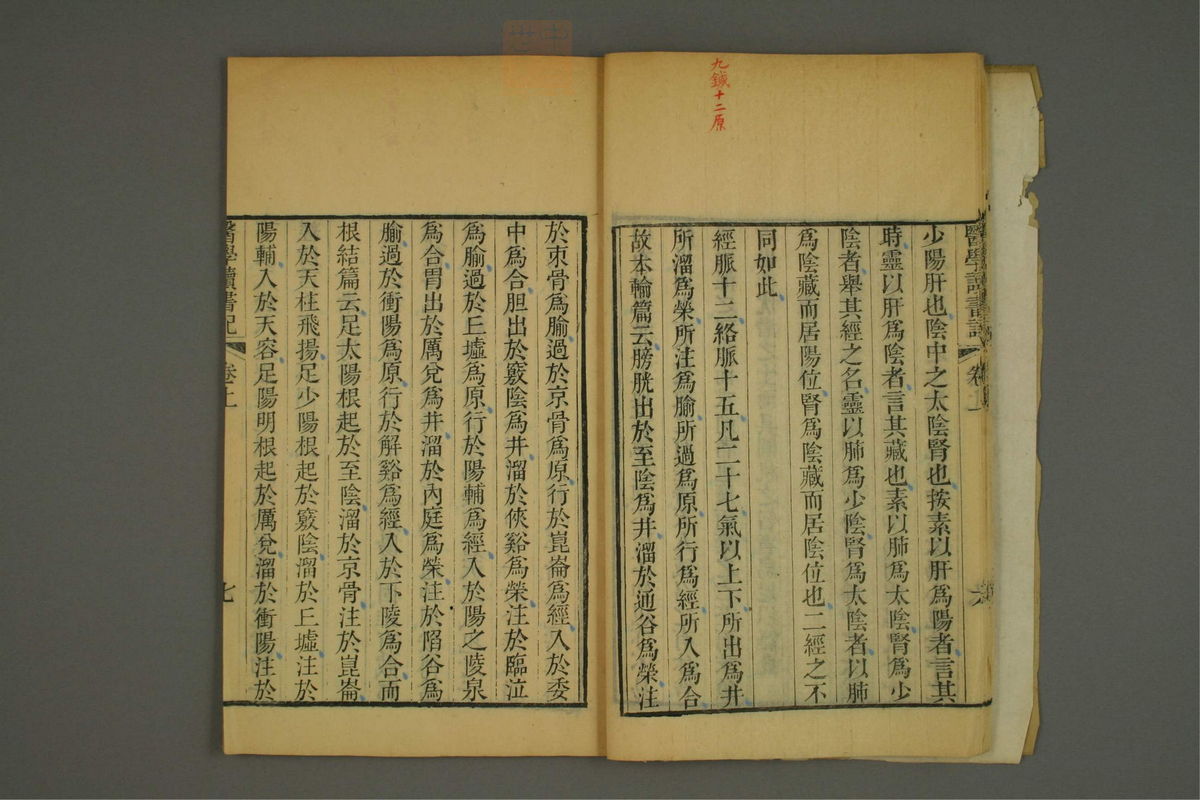 九鍼十二原
少陽肝也陰中之太陰腎也按素以肝爲陽者言其
時靈以肝爲陰者言其藏也素以肺爲太陰腎爲少
陰者舉其經之名靈以肺爲少陰腎爲太陰者以肺
爲陰藏而居陽位腎爲陰藏而居陰位也二經之不
同如此
經脈十二絡脈十五凡二十七氣以上下所出爲井
所溜爲榮所注爲腧所過爲原所行爲經所入爲合
故本輸篇云膀胱出於至陰爲井溜於通谷爲榮注
於朿骨爲腧過於京骨爲原行於崑崙爲經入於委
中爲合胆出於竅陰爲井溜於俠谿爲榮注於臨泣
爲腧過於丘墟爲原行於陽輔爲經入於陽之陵泉
爲合胃出於厲兌爲井溜於內庭爲榮注於陷谷爲
腧過於衝陽爲原行於解谿爲經入於下陵爲合而
根結篇云足太陽根起於至陰溜於京骨注於崑崙
入於天柱飛揚足少陽根起於竅陰溜於丘墟注於
陽輔入於天容足陽明根起於厲兌溜於衝陽注於
醫學讀書記 卷上 七